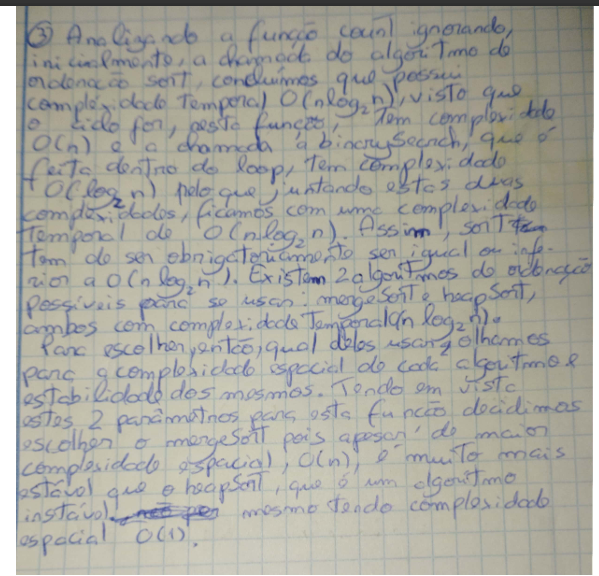 ③ Analizando a função count ignorando,
inicialmente, a chamada do algoritmo de
ordenação sort, concluimos que possui
complexidade Temporal O(nlog₂n), visto que
o ciclo for, nesta função, tem complexidade
O(n) e a chamada à binarySearch, que é
feita dentro do loop, tem complexidade
O(log₂ n) pelo que, juntando estas duas
complexidades, ficamos com uma complexidade
Temporal de O(n.log₂ n). Assim, sort
tem de ser obrigatoriamente ser igual ou infe-
rior a O(n log₂ n). Existem 2 algoritmos de ordenação
possíveis para se usar: mergeSort e heapSort,
ambos com complexidade Temporal(n log₂ n).
Para escolher, então, qual deles usar, olhamos
para a complexidade espacial de cada algoritmo e
estabilidade dos mesmos. Tendo em vista
estes 2 parâmetros para esta função decidimos
escolher o mergeSort pois apesar de maior
complexidade espacial, O(n), é muito mais
estável que o heapSort, que é um algoritmo
instável mesmo tendo complexidade
espacial O(1).